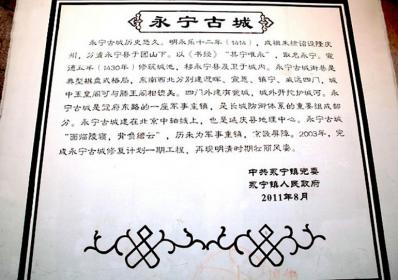 永宁古城
永宁古城历史悠久。明永乐十二年（1414），成祖朱棣诏设隆庆
州，分置永宁县于团山下。以《书经》“其宁惟永”，取名永宁。宣
德五年（1430年）修筑城池，移永宁县及卫于城内。永宁古城街巷是
典型棋盘式格局，东南西北分别建迎晖、宣恩、镇宁、威远四门，城
中玉皇阁可与滕王阁相媲美。四门外建有瓮城，城外开挖护城河。永
宁古城是宣府东路的一座军事重镇，是长城防御体系的重要组成部
分。永宁古城建在北京中轴线上，也是延庆县地理中心。永宁古城
“面临陵寝，背负缙云”，历来为军事重镇，京畿屏障。2003年，完
成永宁古城修复计划一期工程，再现明清时期壮丽风姿。
中共永宁镇党委
永宁镇人民政府
2011年8月